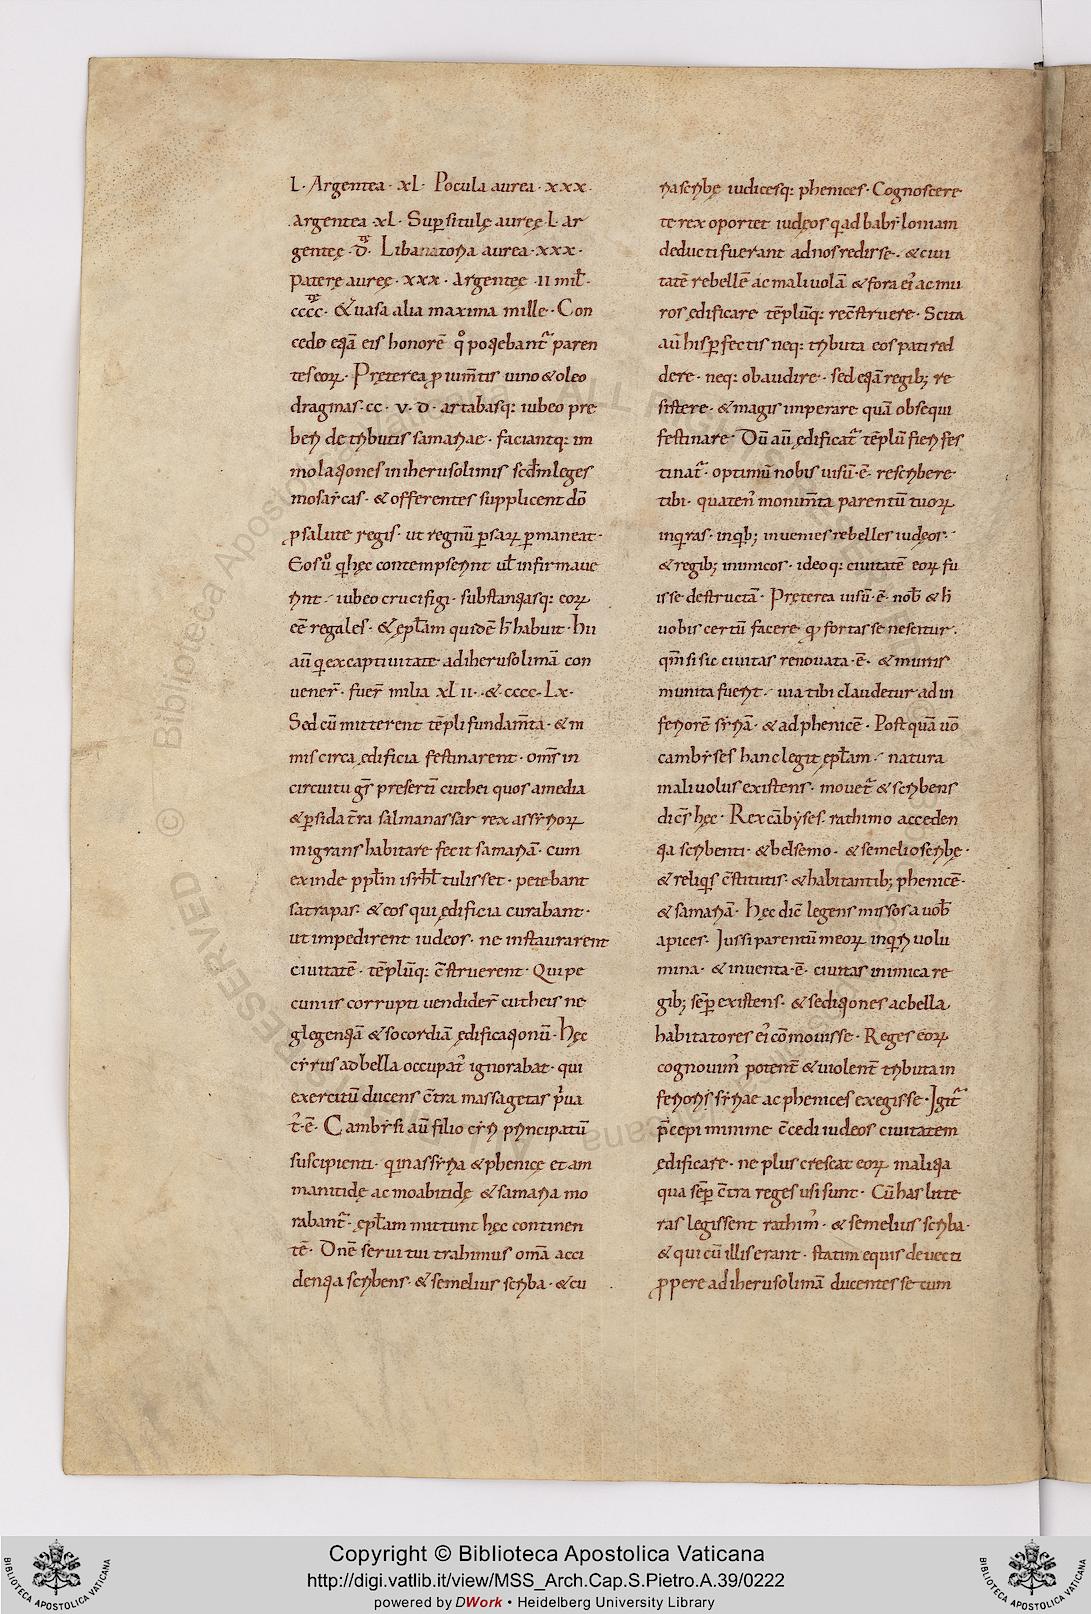 L· Argentea· xL· Pocula aurea· xxx·
argentea xL· Sup̄ situlę aureę· L· ar
genteę· D̄· Libanatoria aurea· xxx·
Paterę aureę· xxx· Argenteę· II mil̄·
cccc· & uasa alia maxima mille· Con
cedo eciā eis honorē q̊ pociebant̄ paren
tes eoꝝ· Pręterea ꝓ ium̄tis uino & oleo
dragmas· cc· v· D· artabasq: iubeo pre
beri de tributis samariae· faciantq: im
molaciones in iherusolimis scd̄m leges
mosaẏcas· & offerentes supplicent dō
ꝓ salute regis· ut regnū ꝑsaꝝ ꝑmaneat·
Eos ů qi hęc contempserint ut̄ infirmaue
rint· iubeo crucifigi· substanciasq: eoꝝ
eē regales· & ep̄tam quidē h̄ habuit· Hii
aū qi ex captiuitate ad iherusolimā con
uener̄· fuer̄ milia xLII· & cccc· Lx·
Sed cū mitterent tēpli fundam̄ta· & ni
mis circa ędificia festinarent· om̄s in
circuitu gr̄s presertī cuthei quos a media
& ꝑsida t̄ra salmanassar rex assẏrioꝝ
migrans habitare fecit samariā· cum
exinde ppl̄m isrl̄ tulisset· petebant
satrapas· & eos qui ędificia curabant·
ut impedirent iudeos· ne instaurarent
ciuitatē· tēplūq: c̄struerent· Qui pe
cuniis corrupti uendider̄ cutheis ne
glegenciā & socordiā edificacionū· Hęc
cẏrus ad bella occupat᷒ ignorabat· qui
exercitū ducens c̄tra massagetas p̄ua
t᷒· ē· Cambẏsi aū filio cẏri principatū
suscipienti· qi in assẏria & phenice et am
manitide ac moabitidę & samaria mo
rabant̄· ępt̄am mittunt hęc continen
tē· Dn̄e serui tui trahimus om̄a acci
dencia scribens· & semelius scriba· & cu
ria scribę iudicesq: phenices· Cognoscere
te rex oportet iudęos qi ad babẏloniam
deducti fuerant ad nos redisse· & ciui
tatē rebellē ac maliuolā & fora ei᷒ ac mu
ros ędificare tēplūq: rec̄struere· Scita
aū his ꝑfectis neq: tributa eos pati red
dere· neq: obaudire· sed eciā regib; re
sistere· & magis imperare quā obsequi
festinare· Dū aū ędificat̄ tēplū fieri fes
tinat̄· optimū nobis uisū· ē· rescribere
tibi· quaten᷒ monum̄ta parentū tuoꝝ
inqiras· in qib; inuenies rebelles iudęos·
& regib; inimicos· ideoq: ciuitatē eoꝝ fu
isse destructā· Pręterea uisū· ē· nob̄ & h̄
uobis certū facere qđ fortasse nescitur·
qm̄ si sic ciuitas renouata· ē· & muris
munita fuerit· uia tibi claudetur ad in
feriorē sẏriā· & ad phenicē· Postquā ůo
cambẏses hanc legit ępt̄am· natura
maliuolus existens· mouet̄ & scribens
dic̄s hęc· Rex cābẏses· rathimo acceden
cia scribenti· & belsemo· & semelio scribę·
& reliqis c̄stitutis· & habitantib; phenicē·
& samariā· Hęc dic̄ legens missos a uob̄
apices· Iussi parentū meoꝝ inqiri uolu
mina· & inuenta· ē· ciuitas inimica re
gib; sēp existens· & sediciones ac bella
habitatores ei᷒ cōmouisse· Reges eoꝝ
cognouim᷒ potent̄ & uiolent̄ tributa in
ferioris sẏriae ac phenices exegisse· Igit̄
p̄cepi minime c̄cedi iudeos ciuitatem
ędificare· ne plus crescat eoꝝ malicia
qua sēp c̄tra reges usi sunt· Cū has litte
ras legissent rathim᷒· & semelius scriba·
& qui cū illis erant· statim equis deuecti
ꝓpere ad iherusolimā ducentes secum
Copyright © Biblioteca Apostolica Vaticana
http://digi.vatlib.it/view/MSS_Arch.Cap.S.Pietro.A.39/0222
powered by DWork • Heidelberg University Library